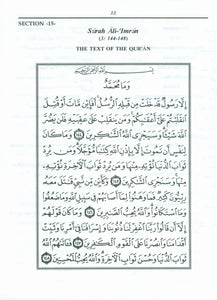 12
SECTION -15-
Sūrah Āli-'Imrān
(3: 144-148)
THE TEXT OF THE QUR'ĀN
بِسْمِ ٱللَّهِ ٱلرَّحْمَٰنِ ٱلرَّحِيمِ
وَمَا مُحَمَّدٌ
إِلَّا رَسُولٌ قَدْ خَلَتْ مِن قَبْلِهِ ٱلرُّسُلُ أَفَإِي۟ن مَّاتَ أَوْ قُتِلَ
ٱنقَلَبْتُمْ عَلَىٰٓ أَعْقَٰبِكُمْ وَمَن يَنقَلِبْ عَلَىٰ عَقِبَيْهِ فَلَن يَضُرَّ
ٱللَّهَ شَيْـًٔا وَسَيَجْزِى ٱللَّهُ ٱلشَّٰكِرِينَ ١٤٤ وَمَا كَانَ
لِنَفْسٍ أَن تَمُوتَ إِلَّا بِإِذْنِ ٱللَّهِ كِتَٰبًا مُّؤَجَّلًا وَمَن يُرِدْ
ثَوَابَ ٱلدُّنْيَا نُؤْتِهِۦ مِنْهَا وَمَن يُرِدْ ثَوَابَ ٱلْءَاخِرَةِ نُؤْتِهِۦ
مِنْهَا وَسَنَجْزِى ٱلشَّٰكِرِينَ ١٤٥ وَكَأَيِّن مِّن نَّبِىٍّ قَٰتَلَ مَعَهُۥ
رِبِّيُّونَ كَثِيرٌ فَمَا وَهَنُوا۟ لِمَآ أَصَابَهُمْ فِى سَبِيلِ ٱللَّهِ وَمَا ضَعُفُوا۟
وَمَا ٱسْتَكَانُوا۟ وَٱللَّهُ يُحِبُّ ٱلصَّٰبِرِينَ ١٤٦ وَمَا كَانَ قَوْلَهُمْ
إِلَّآ أَن قَالُوا۟ رَبَّنَا ٱغْفِرْ لَنَا ذُنُوبَنَا وَإِسْرَافَنَا فِىٓ أَمْرِنَا وَثَبِّتْ
أَقْدَامَنَا وَٱنصُرْنَا عَلَى ٱلْقَوْمِ ٱلْكَٰفِرِينَ ١٤٧ فَـَٔاتَىٰهُمُ ٱللَّهُ
ثَوَابَ ٱلدُّنْيَا وَحُسْنَ ثَوَابِ ٱلْءَاخِرَةِ وَٱللَّهُ يُحِبُّ ٱلْمُحْسِنِينَ ١٤٨